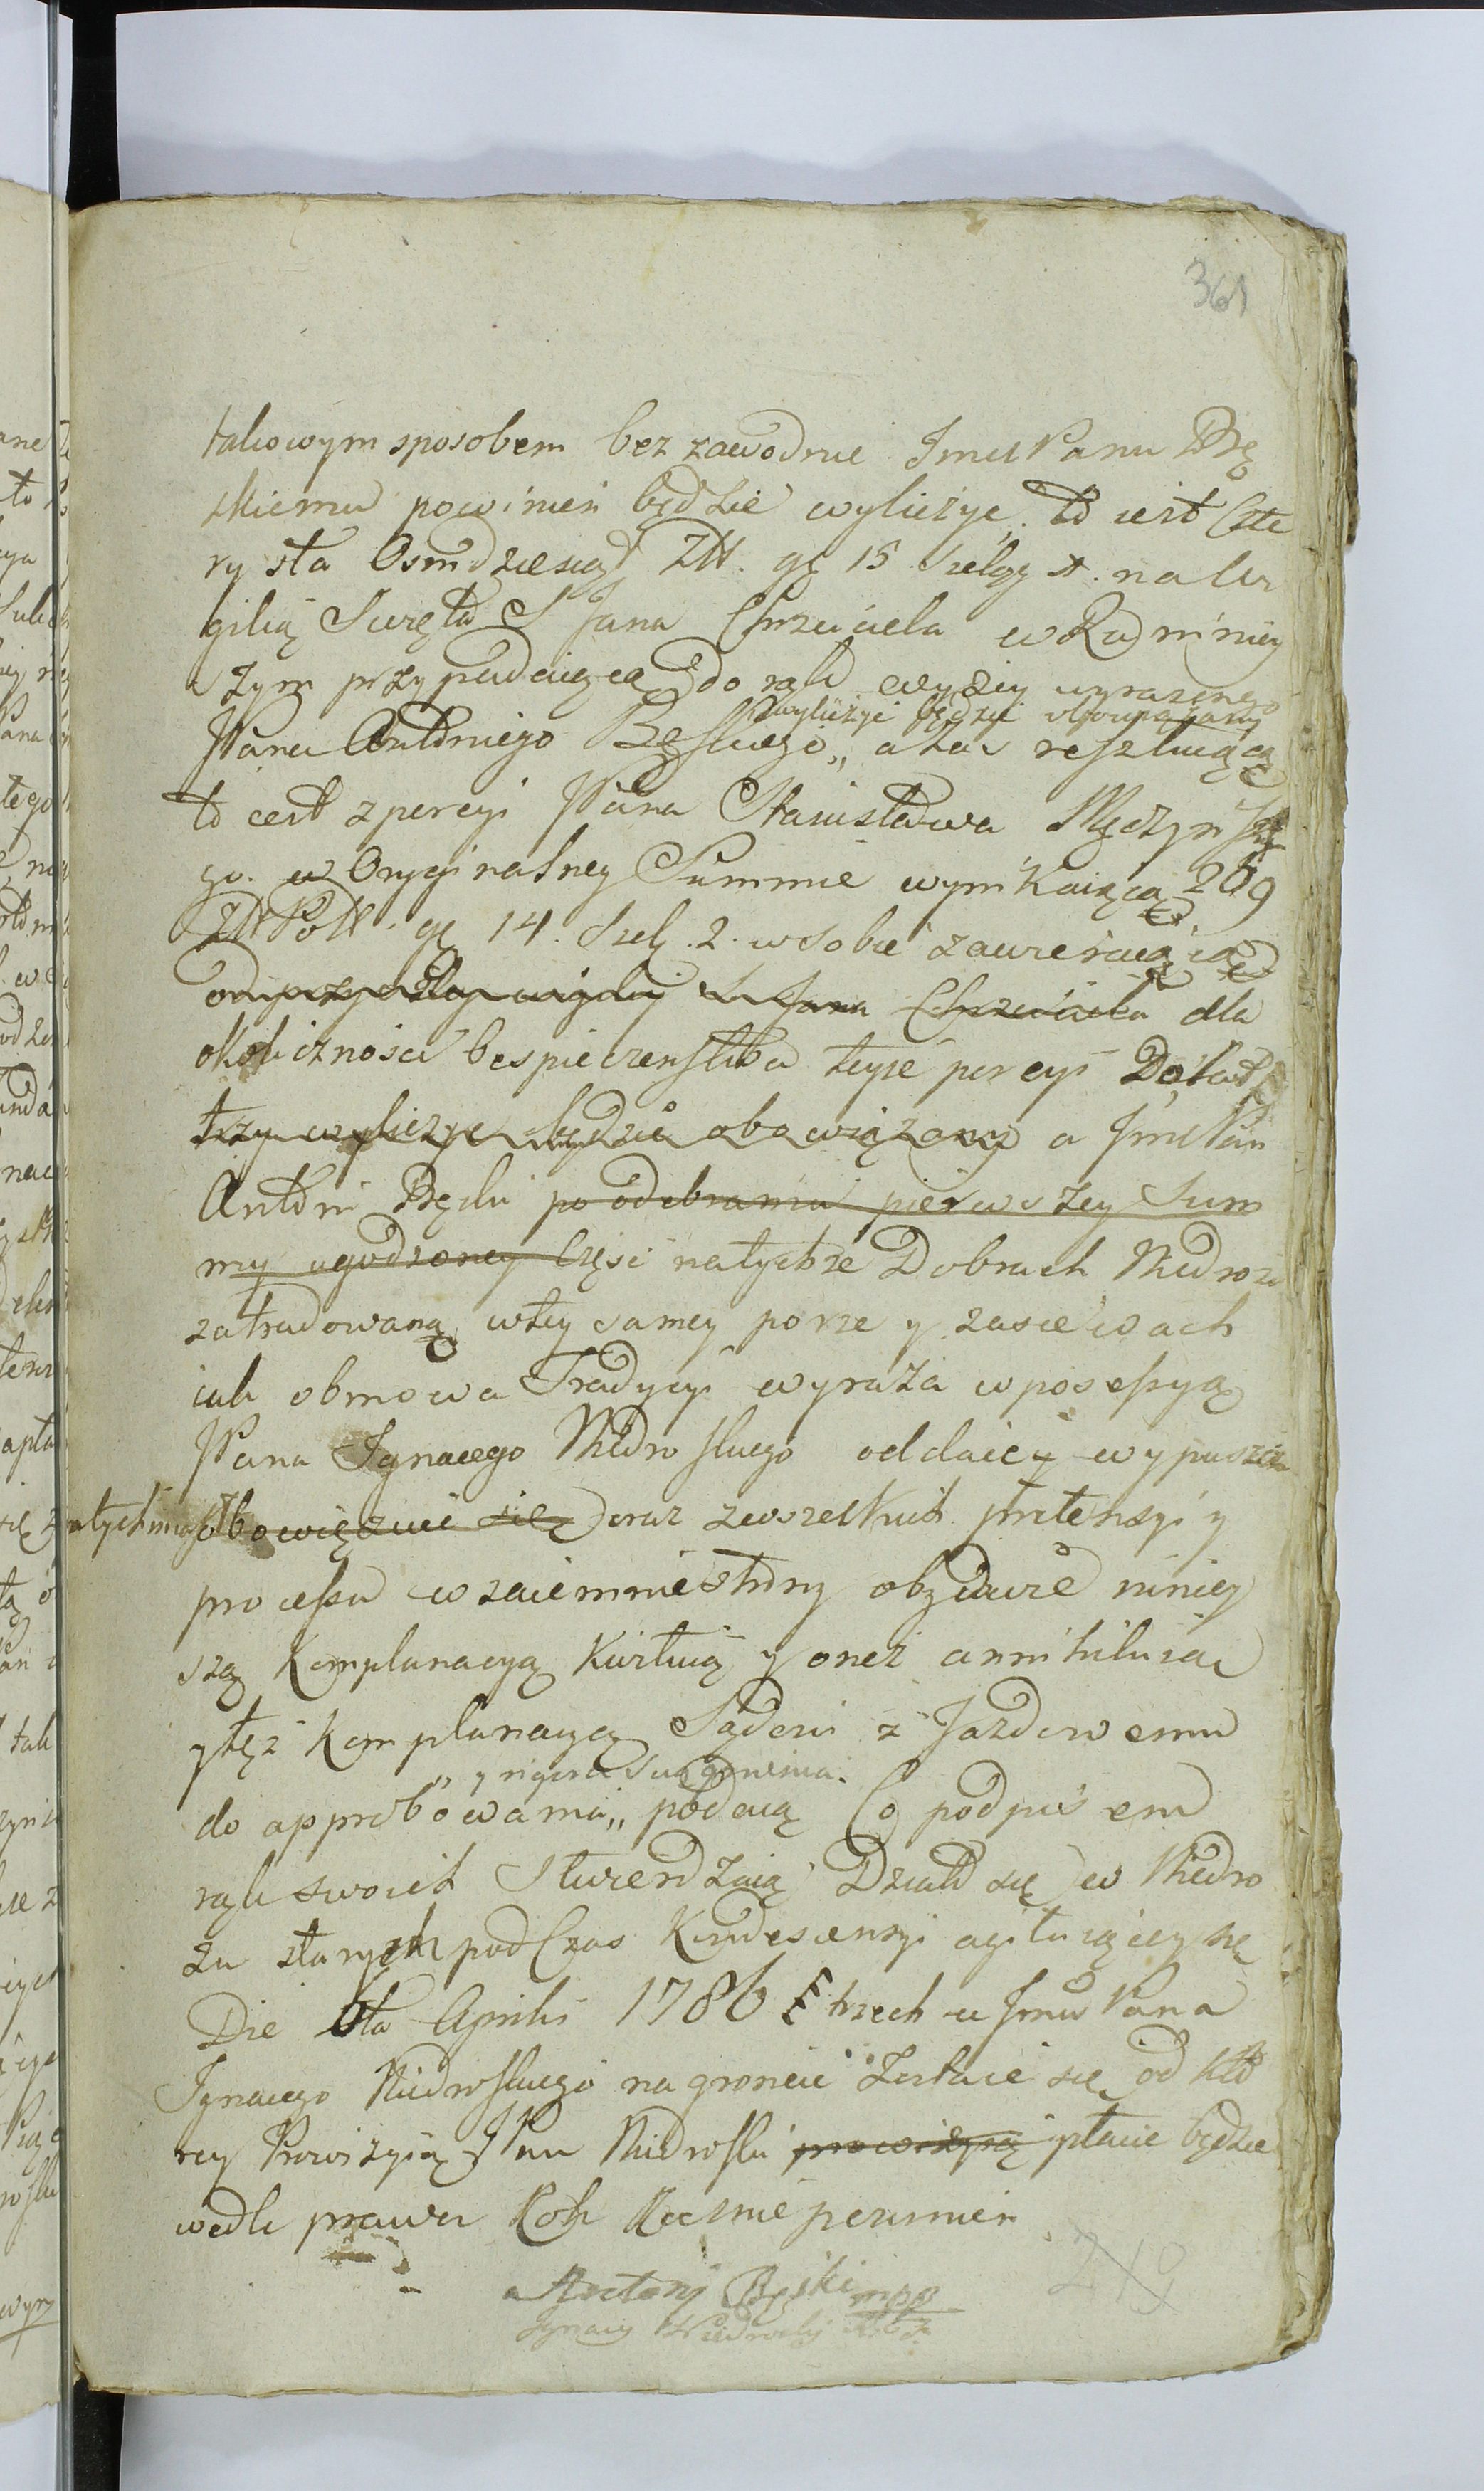 361
takowym sposobem bez zawodnie Jmci Panu Bę
skiemu powinien będzie wyliczyć, to iest Czte
ry sta Osmdziesiąt Złł. gr 15 Szeląg 1. na Wi
gilią Swięta S Jana Chrzciciela w Roku ninieÿ
szym przypadaiącą do rąk wyżey wyrażonego
wyliczyć będzie obowiązany
JPana Antoniego Bęskiego „ a zaś resztuiącą
to iest z porcyi JPana Stanisława Męczynskie
go. w Oryginalney Summie wynikaiącą 209
Złł Poll. gr 14. Szel. 2. w sobie zawieraiącą
od przyszłey wigilii S Jana Chrzciciela dla
okoliczności bespieczenstwa teyże porcyi Do lat
trzy wyliczyć będzie obowiązany a Jmć Pan
Antoni Bęski po odebraniu pierwszey Sum
my ugodzoney Część na tychże Dobrach Niedroże
zatradowaną w tey samey porze y zasiewach
iak obmowa Tradycyi wyraża w possessyą
JPana Ignacego Niedroskiego oddaie y wypuszcza
natychmiast obowięzuie się oraz z wszelkich pretensyi y
processu wzaiemnie strony obydwie niniey
szą Komplanacyą kwituią y oneż annihiluią
y też Komplanacyą Sądowi z Jazdowemu
„ y rigorowania.
do approbowania „ podaią Co podpisem
rąk swoich stwierdzaią Działo się w Niedro
żu starych pod Czas Kondescensyi agituiącey się
Die 6ta Aprilis 1786 trzech u Jmci Pana
Ignacego Niedroskiego na groncie Zostaie się od któ
rey Prowizyią JPan Niedroski prowizyią płacić będzie
wedle prawa Rok Rocznie powinien
Antoni Bęski mpp
Ignacy Niedroski
219